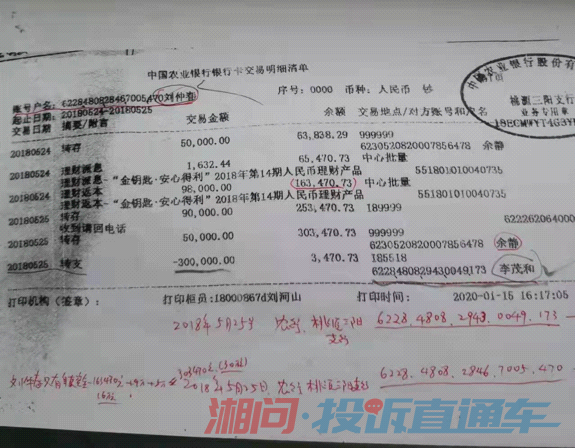 中国农业银行银行卡交易明细清单
账号户名: 6228480828467005470刘仲春 序号: 0000 币种: 人民币 钞
起止日期: 20180524-20180525
交易日期 摘要/附言 交易金额 余额 交易地点/对方账号和户名
中国农业银行股份有
桃源三阳支行
业务专用章
20180524 转存 50,000.00 63,838.29 999999
6230520820007856478 余静
20180524 理财派息 1,632.44 65,470.73 中心批量
理财派息-“金钥匙·安心得利”2018年第14期人民币理财产品 551801010040735
20180524 理财返本 98,000.00 163,470.73 中心批量
理财返本-“金钥匙·安心得利”2018年第14期人民币理财产品 551801010040735
20180525 转存 90,000.00 253,470.73 189999
收到请回电话 6222262064000
20180525 转存 50,000.00 303,470.73 999999
6230520820007856478 余静
20180525 转支 -300,000.00 3,470.73 185518
6228480829430049173 李茂和
打印机构(签章): 打印柜员:18000867d刘河山 打印时间: 2020-01-15 16:17:05
2018年5月25日 农行 桃源三阳支行 6228.4808.2943.0049.173
2018年5月25日 农行 桃源三阳支行 6228.4808.2846.7005.470
湘问·投诉直通车